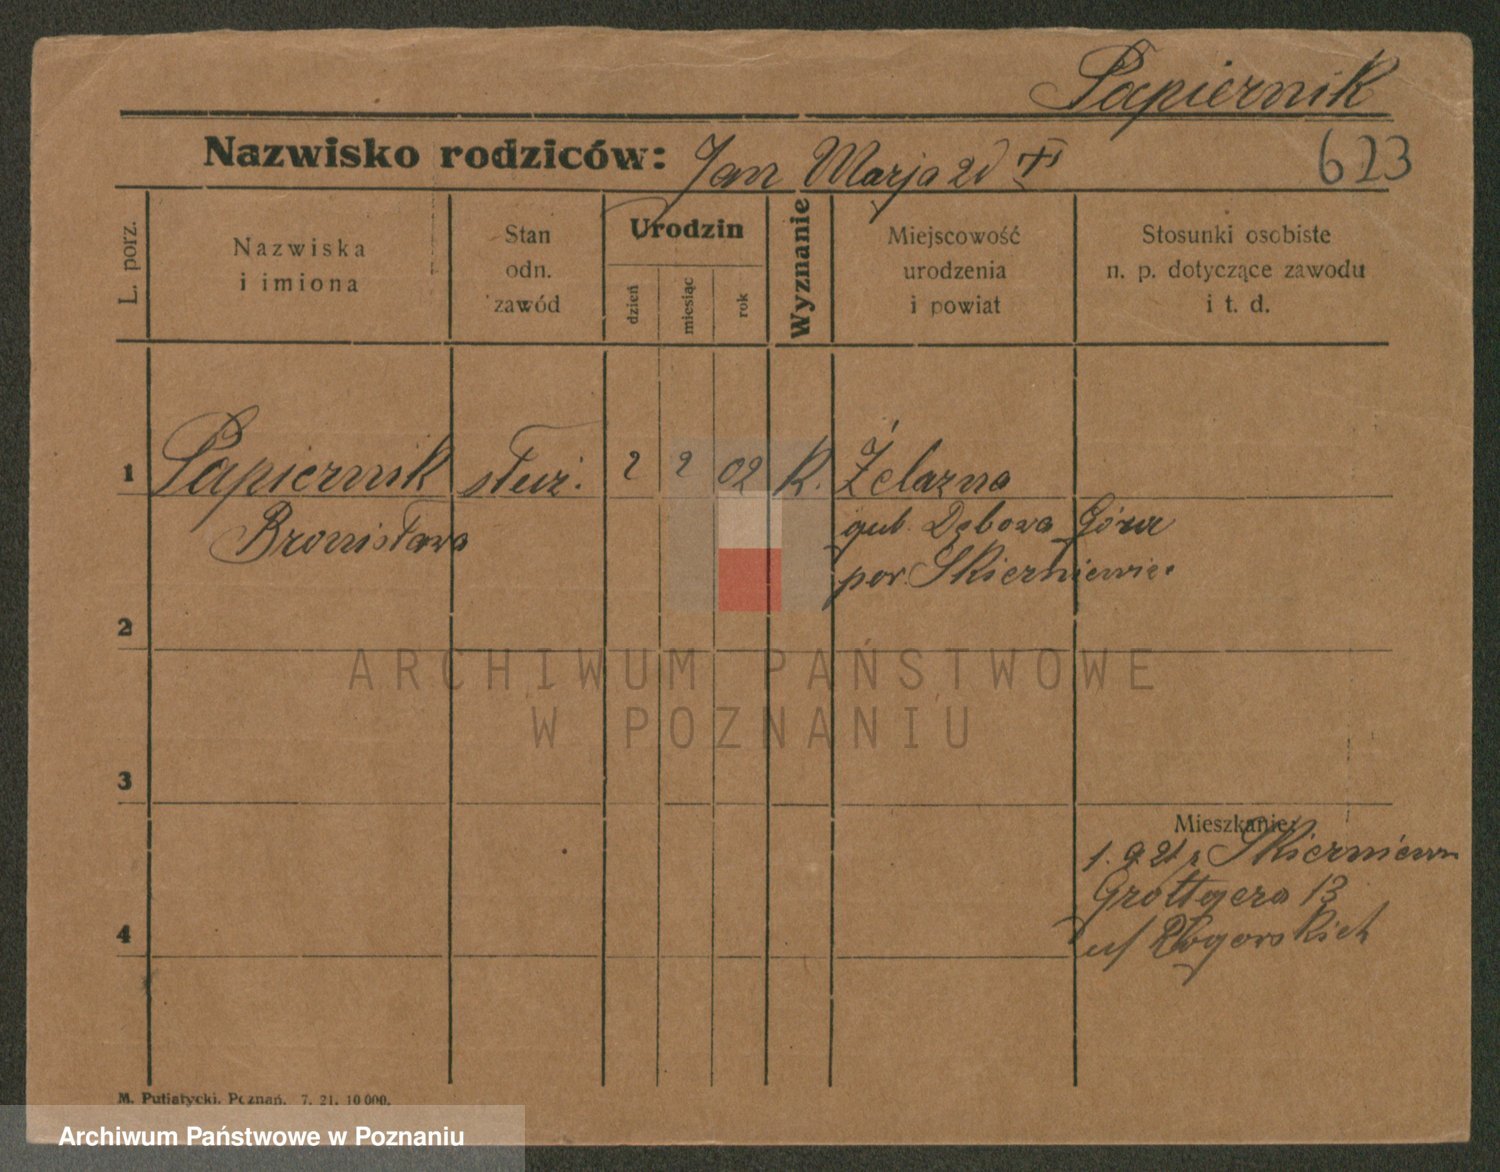 Papiernik
Nazwisko rodziców: Jan Marja zd
623
L. porz.
Nazwiska
i imiona
Stan
odn.
zawód
Urodzin
dzień
miesiąc
rok
Wyznanie
Miejscowość
urodzenia
i powiat
Stosunki osobiste
n. p. dotyczące zawodu
i t. d.
1 Papiernik służ. 2 2 02 K. Żelazna
Bronisława gub. Dębowa Góra
pow. Skierniewic
2
3
4
Mieszkanie:
1.9.21 z Skierniewic
Grottgera 13
u/
ARCHIWUM PAŃSTWOWE
W POZNANIU
M. Putiatycki. Poznań. 7. 21. 10 000.
Archiwum Państwowe w Poznaniu